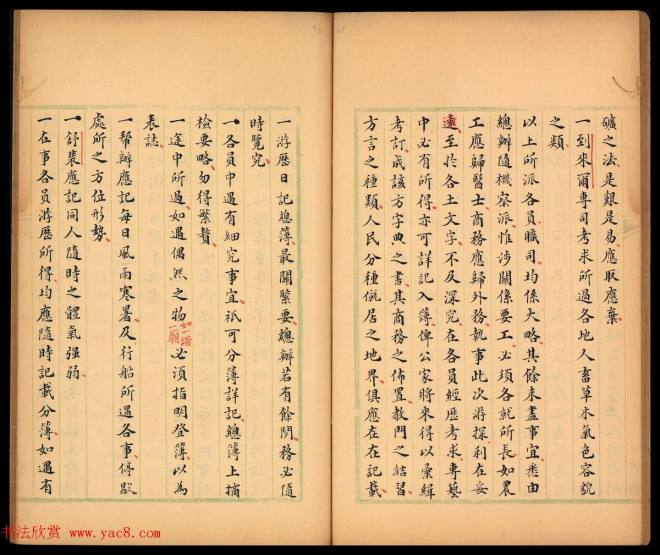 礦之法是艱是易應取應棄
一到來爾專司考求所過各地人畜草木氣色容貌
之類
以上所派各員職司均係大略其餘未盡事宜悉由
總辦隨機察派惟涉關係要工必須各就所長如農
工應歸醫士商務應歸外務執事此次游探利在妥
速至於各土文字不及深究在各員經歷考求專藝
中必有所得亦可詳記入簿俾公家將來得以彙緝
考訂成該方字典之書其商務之佈置教門之結習
方言之種類人民分種佌居之地界俱應在在記載
一游歷日記總簿最關緊要總辦若有餘閒務必隨
時覽究
一各員中遇有細究事宜祇可分簿詳記總簿上摘
檢要略勿得繁贅
一途中所過如遇偶然之物如一塔一廟必須指明登簿以為
表誌
一帮辦應記每日風雨寒暑及行船所遇各事停歇
處所之方位形勢
一舒裴應記同人隨時之體氣强弱
一在事各員游歷所得均應隨時記載分簿如遇有
书法欣赏 www.yac8.com